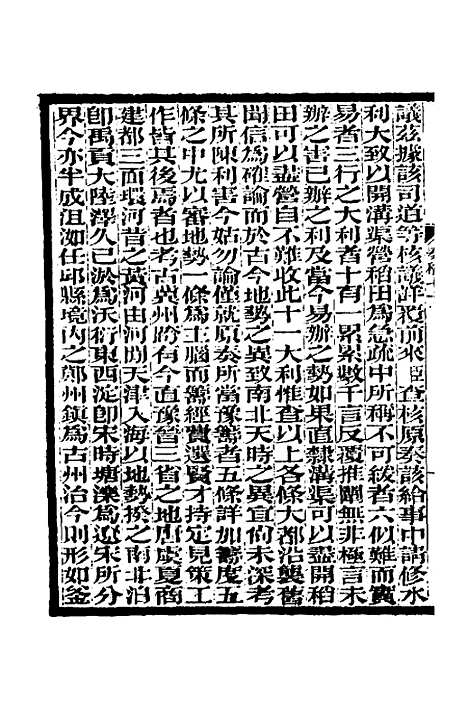 議茲據該司道等核議詳覆前來臣查核原奏該給事中請修水
利大致以開溝渠營稻田爲急疏中所稱不可緩者六似難而實
易者三行之大利者十有一累累數千言反覆推闡無非極言未
辦之害已辦之利及當今易辦之勢如果直隸溝渠可以盡開稻
田可以盡營自不難收此十一大利惟查以上各條大都沿襲舊
聞信爲確論而於古今地勢之異致南北天時之異宜尙未深考
其所陳利害今姑勿論僅就原奏所當豫籌者五條詳加籌度五
條之中尤以審地勢一條爲主腦而籌經費選賢才持定見策工
作皆其後焉者也考古冀州跨有今直豫晉三省之地唐虞夏商
建都三面環河昔之黃河由河間天津入海以地勢揆之南北泊
卽禹貢大陸澤久已淤爲沃衍東西淀卽宋時塘濼爲遼宋所分
界今亦半成沮洳任邱縣境內之鄚州鎮爲古州治今則形如釜